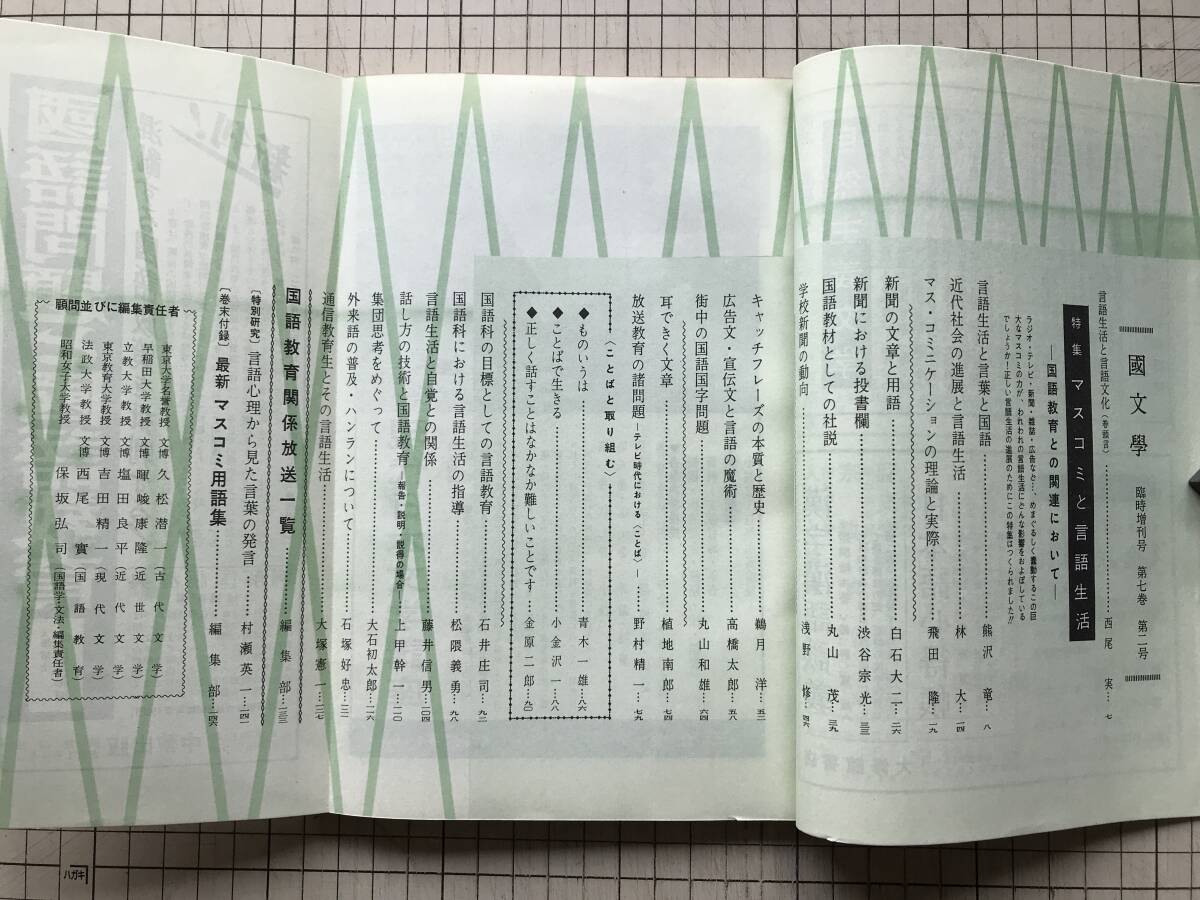 國文學 臨時増刊号 第七巻 第二号
言語生活と言語文化(巻頭言)……西尾 実…七
特集 マスコミと言語生活
―国語教育との関連において―
ラジオ・テレビ・新聞・雑誌・広告など…、めまぐるしく轟動するこの巨
大なマスコミの力が、われわれの言語生活にどんな影響をおよぼしている
でしょうか!正しい言語生活の進展のためにこの特集はつくられました!!
言語生活と言葉と国語……熊沢 竜…八
近代社会の進展と言語生活……林 大…一四
マス・コミニケーションの理論と実際……飛田 隆…一九
新聞の文章と用語……白石大二…二六
新聞における投書欄……渋谷宗光…三三
国語教材としての社説……丸山 茂…三九
学校新聞の動向……浅野 修…四六
キャッチフレーズの本質と歴史……鵜月 洋…五二
広告文・宣伝文と言語の魔術……高橋太郎…五八
街中の国語国字問題……丸山和雄…六四
耳できく文章……植地南郎…七四
放送教育の諸問題―テレビ時代における〈ことば〉―……野村精一…七九
〈ことばと取り組む〉
◆ものいうは……青木一雄…八六
◆ことばで生きる……小金沢一…八八
◆正しく話すことはなかなか難しいことです……金原二郎…九〇
国語科の目標としての言語教育……石井庄司…九二
国語科における言語生活の指導……松隈義勇…九八
言語生活と自覚との関係……藤井信男…一〇四
話し方の技術と国語教育―報告・説明・説得の場合―……上甲幹一…一一〇
集団思考をめぐって……大石初太郎…一一六
外来語の普及・ハンランについて……石塚好忠…一二二
通信教育生とその言語生活……大塚憲一…一二七
国語教育関係放送一覧……編集部…一三三
〔特別研究〕言語心理から見た言葉の発言……村瀬英一…一四一
〔巻末付録〕最新 マスコミ用語集……編集部…一四六
顧問並びに編集責任者
東京大学名誉教授 文博 久松潜一(古代文学)
早稲田大学教授 文博 暉峻康隆(近世文学)
立教大学教授 文博 塩田良平(近代文学)
東京教育大学教授 文博 吉田精一(現代文学)
法政大学教授 文博 西尾實(国語教育)
昭和女子大学教授 保坂弘司(国語学・文法・編集責任者)
ハガキ